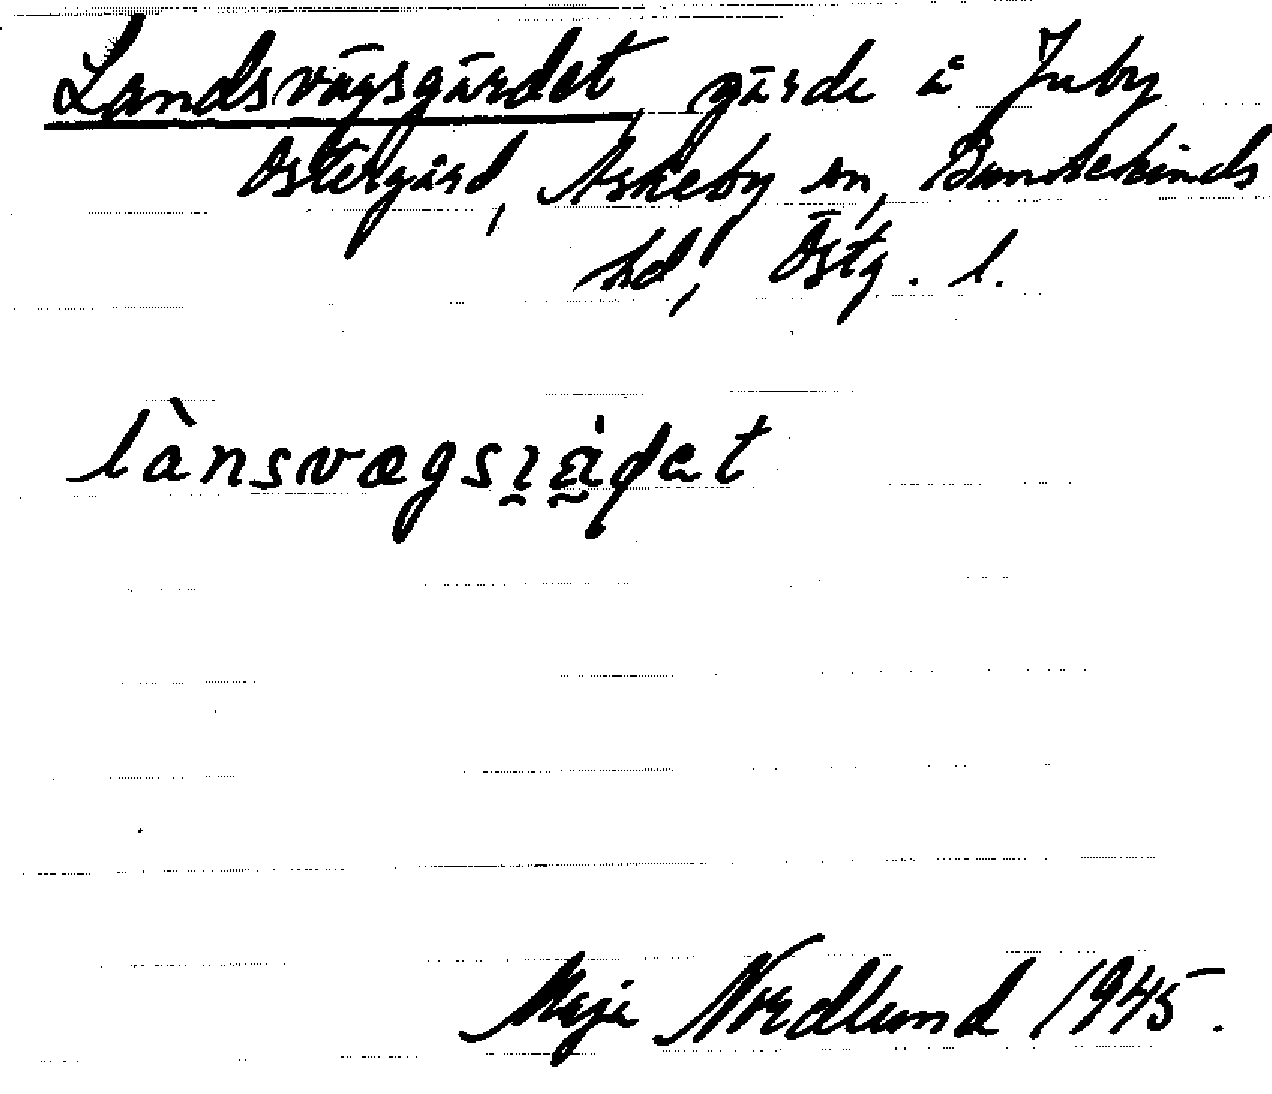 Landsvägsgärdet gärde å Juby
Östergård, Askeby sn, Bankekinds
hd, Östg. l.
lànsvægsɿäd̶et
Maja Nordlund 1945.